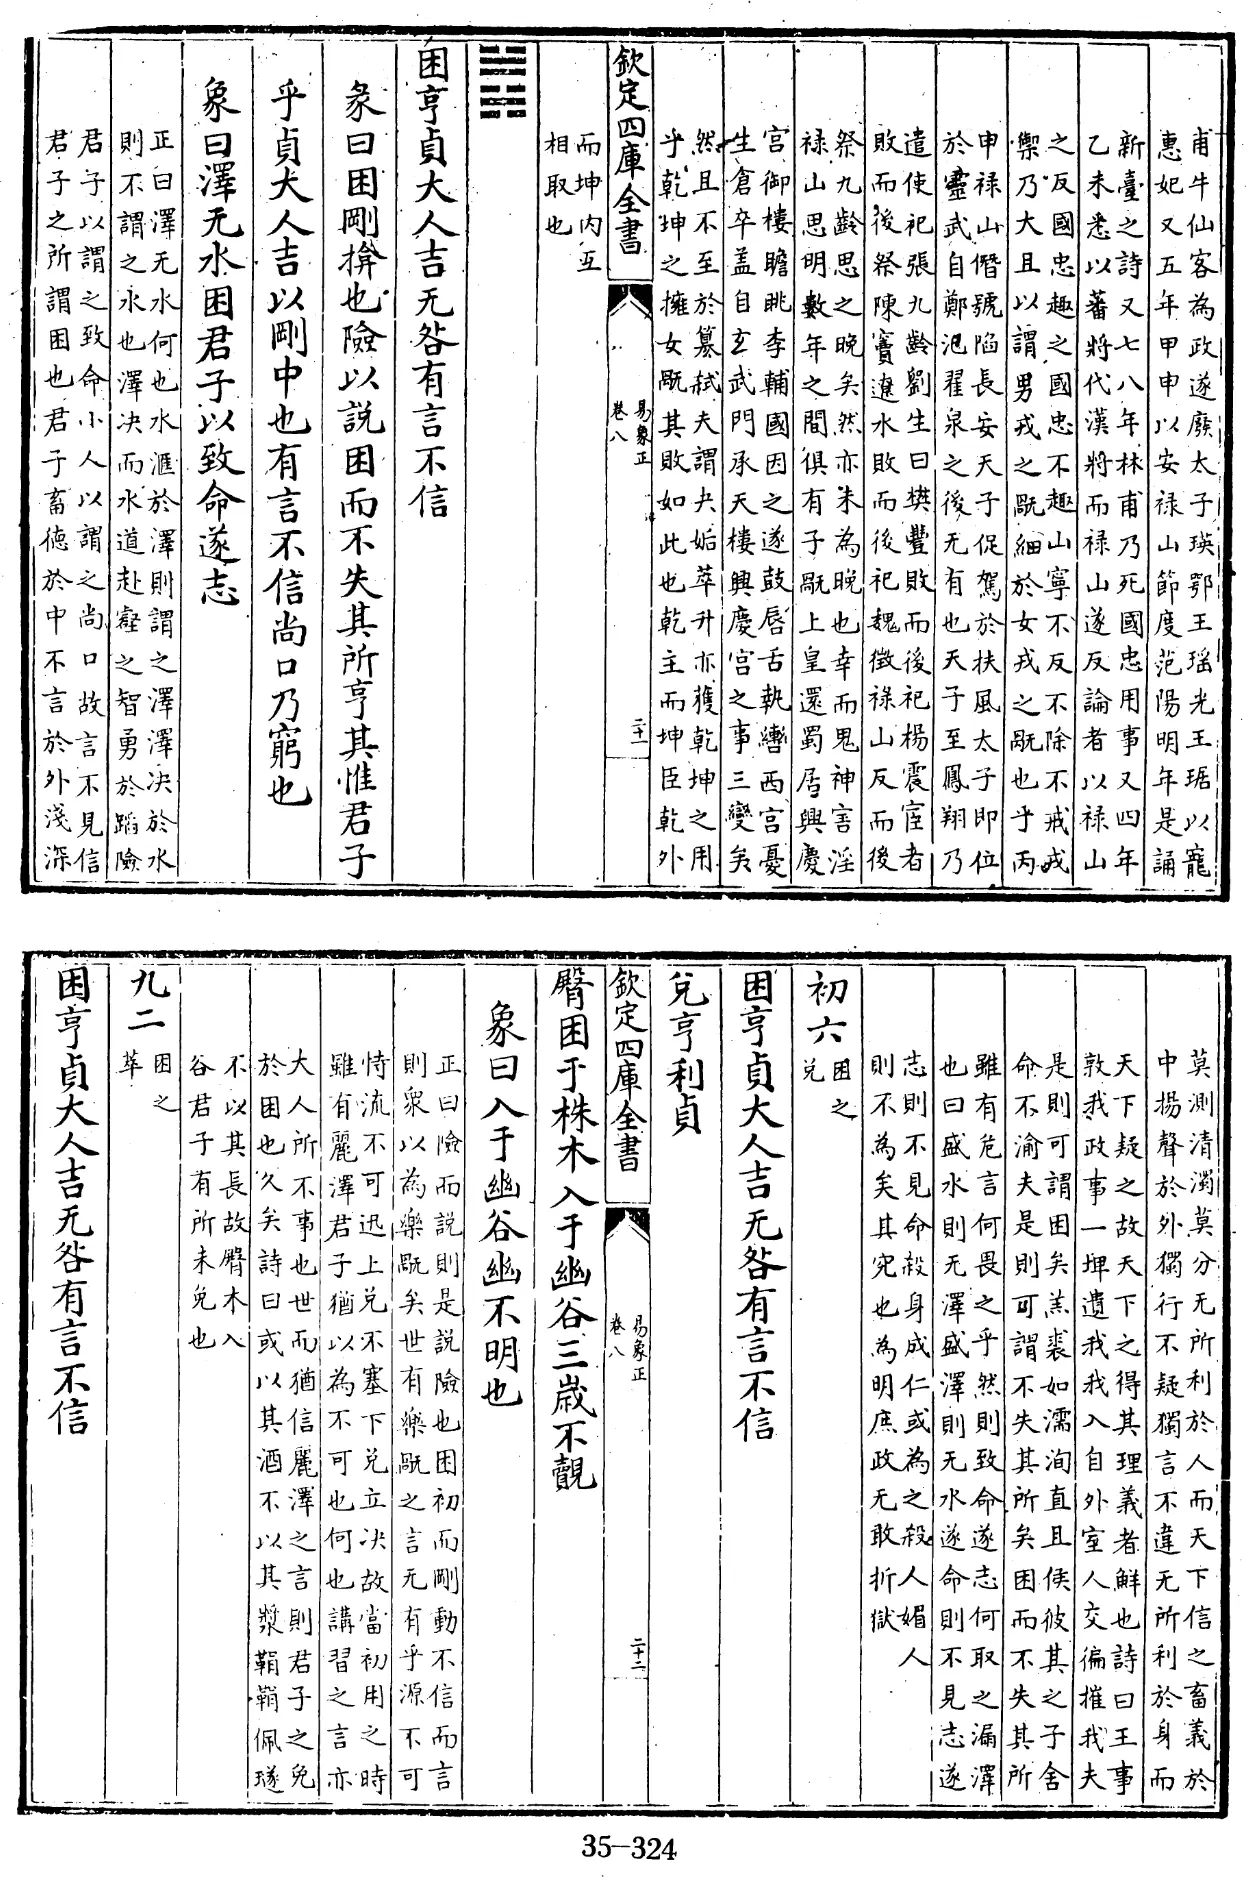 甫牛仙客為政遂廢太子瑛鄂王瑶光王琚以寵
惠妃又五年甲申以安禄山節度范陽明年是誦
新臺之詩又七八年林甫乃死國忠用事又四年
乙未悉以蕃將代漢將而禄山遂反論者以禄山
之反國忠趣之國忠不趣山寧不反不除不戒戎
禦乃大且以謂男戎之戬細於女戎之戬也乎丙
申禄山僭號陷長安天子促駕於扶風太子即位
於靈武自鄭汜翟泉之後无有也天子至鳳翔乃
遣使祀張九齡劉生曰樊豐敗而後祀楊震宦者
敗而後祭陳竇遼水敗而後祀魏徵禄山反而後
祭九齡思之晚矣然亦未為晚也幸而鬼神害淫
禄山思明數年之間俱有子戬上皇還蜀居興慶
宮御樓瞻眺李輔國因之遂鼓唇舌執轡西宮憂
生倉卒盖自玄武門承天樓興慶宮之事三變矣
然且不至於簒弑夫謂夬姤萃升亦獲乾坤之用
乎乾坤之擁女戬其敗如此也乾主而坤臣乾外
欽定四庫全書
易象正
卷八
二十一
而坤内互
相取也
䷮
困亨貞大人吉无咎有言不信
彖曰困剛揜也險以説困而不失其所亨其惟君子
乎貞大人吉以剛中也有言不信尚口乃窮也
象曰澤无水困君子以致命遂志
正曰澤无水何也水滙於澤則謂之澤澤决於水
則不謂之水也澤决而水道赴壑之智勇於蹈險
君子以謂之致命小人以謂之尚口故言不見信
君子之所謂困也君子畜徳於中不言於外淺深
莫測清濁莫分无所利於人而天下信之畜義於
中揚聲於外獨行不疑獨言不違无所利於身而
天下疑之故天下之得其理義者鮮也詩曰王事
敦我政事一埤遺我我入自外室人交徧摧我夫
是則可謂困矣羔裘如濡洵直且侯彼其之子舍
命不渝夫是則可謂不失其所矣困而不失其所
雖有危言何畏之乎然則致命遂志何取之漏澤
也曰盛水則无澤盛澤則无水遂命則不見志遂
志則不見命殺身成仁或為之殺人媚人
則不為矣其究也為明庶政无敢折獄
初六
困之
兌
困亨貞大人吉无咎有言不信
兌亨利貞
欽定四庫全書
易象正
卷八
二十二
臀困于株木入于幽谷三歳不覿
象曰入于幽谷幽不明也
正曰險而説則是説險也困初而剛動不信而言
則衆以為樂戬矣世有樂戬之言无有乎源不可
恃流不可迅上兌不塞下兌立决故當初用之時
雖有麗澤君子猶以為不可也何也講習之言亦
大人所不事也世而猶信麗澤之言則君子之免
於困也久矣詩曰或以其酒不以其漿鞙鞙佩璲
不以其長故臀木入
谷君子有所未免也
九二
困之
萃
困亨貞大人吉无咎有言不信
35-324